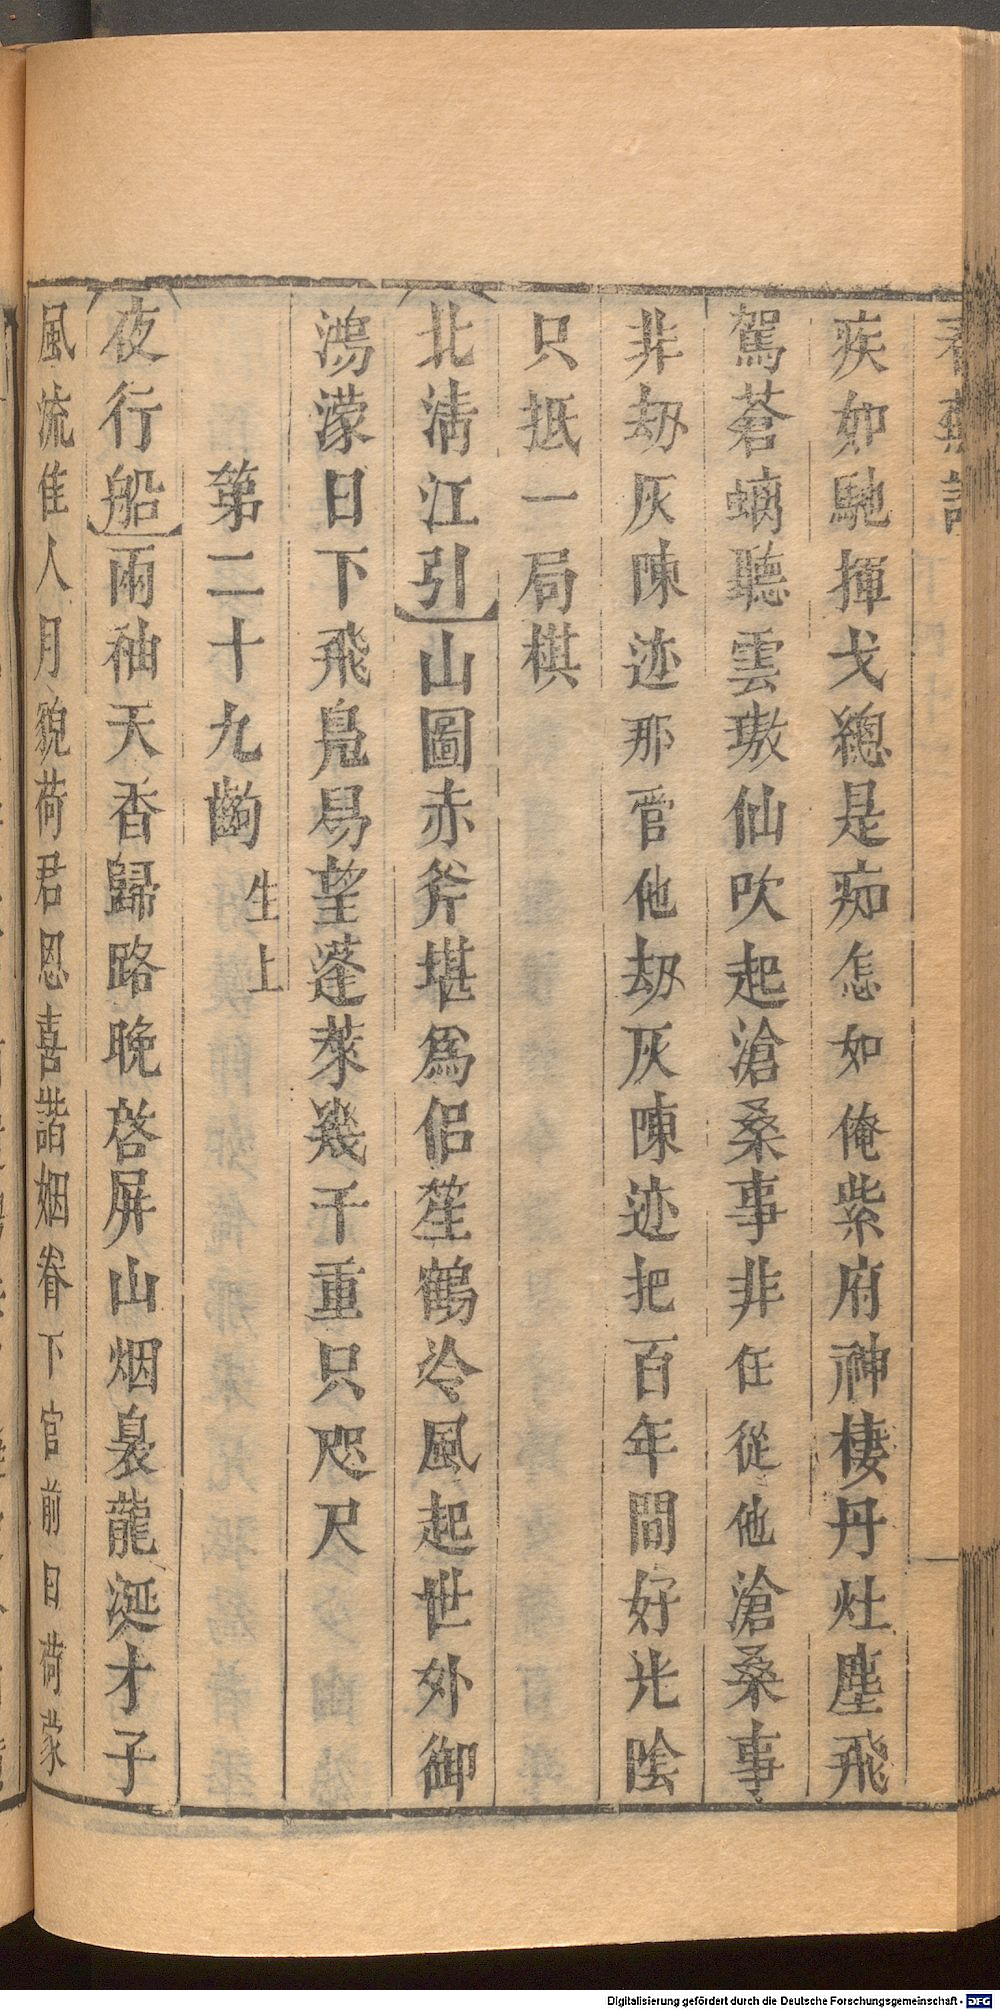 疾如馳揮戈總是痴怎如俺紫府神棲丹灶塵飛
駕蒼螭聽雲璈仙吹起滄桑事非任從他滄桑事
非劫灰陳迹那管他劫灰陳迹把百年間好光陰
只抵一局棋
北清江引山圖赤斧堪爲侣笙鶴冷風起世外御
鴻濛日下飛鳧舄望蓬萊幾千重只咫尺
第二十九齣 生上
夜行船兩袖天香歸路晚啓屏山烟裊龍涎才子
風流佳人月貌荷君恩喜諧姻眷下官前日荷蒙
Digitalisierung gefördert durch die Deutsche Forschungsgemeinschaft - DFG